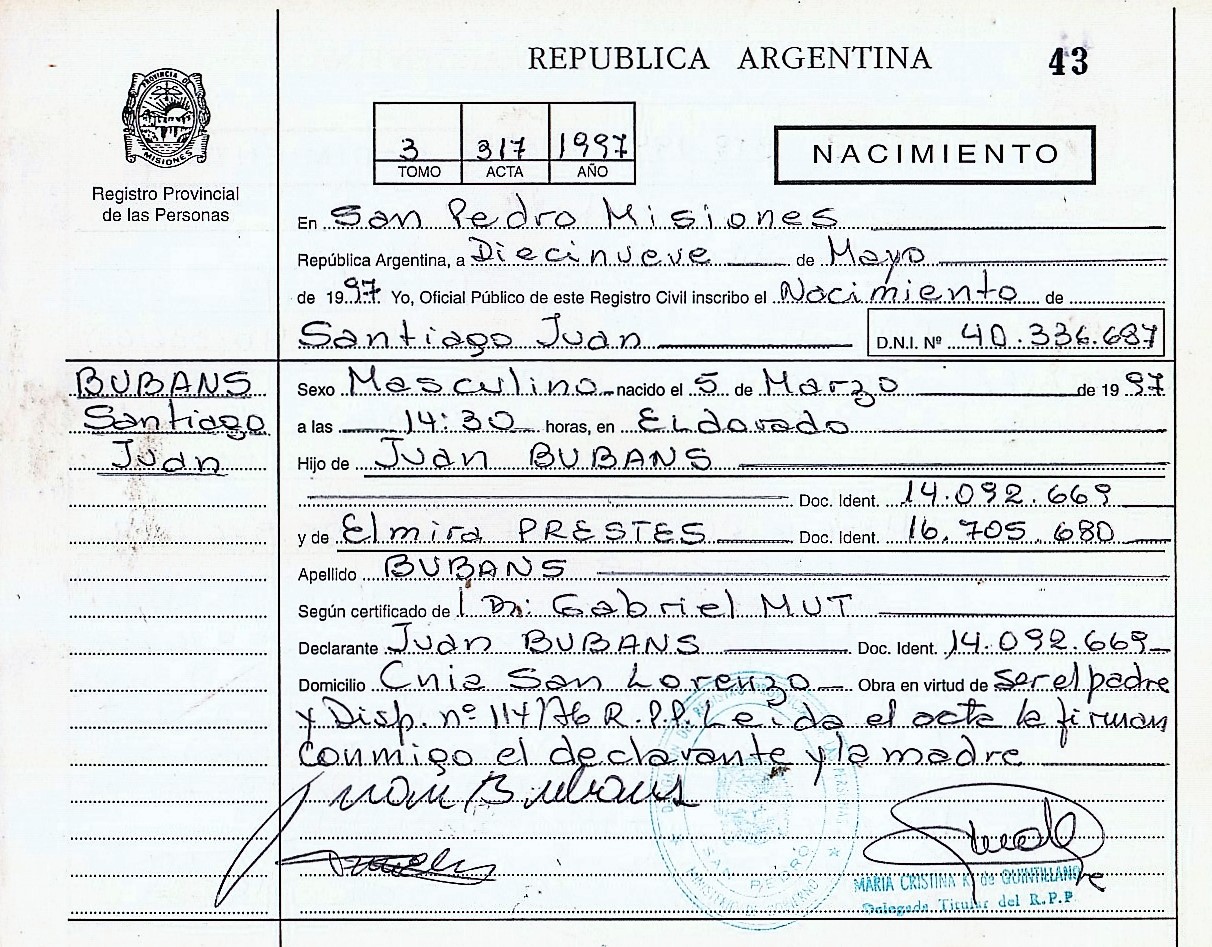 REPUBLICA ARGENTINA 43
PROVINCIA DE
MISIONES
Registro Provincial
de las Personas
3 317 1997
TOMO ACTA AÑO
NACIMIENTO
En San Pedro Misiones
República Argentina, a Diecinueve de Mayo
de 1997 Yo, Oficial Público de este Registro Civil inscribo el Nacimiento de
Santiago Juan D.N.I. Nº 40.336.687
BUBANS
Santiago
Juan
Sexo Masculino nacido el 5 de Marzo de 1997
a las 14:30 horas, en Eldorado
Hijo de Juan BUBANS
Doc. Ident. 14.092.669
y de Elmira PRESTES Doc. Ident. 16.705.680
Apellido BUBANS
Según certificado de Dr. Gabriel MUT
Declarante Juan BUBANS Doc. Ident. 14.092.669
Domicilio Cnia San Lorenzo Obra en virtud de ser el padre
y Disp. nº 114/76 R.P.P. Leída el acta la firman
conmigo el declarante y la madre
Juan Bubans
SAN PEDRO
MINISTERIO DE GOBIERNO
MARIA CRISTINA K. de QUINTILLANO
Delegada Titular del R.P.P.